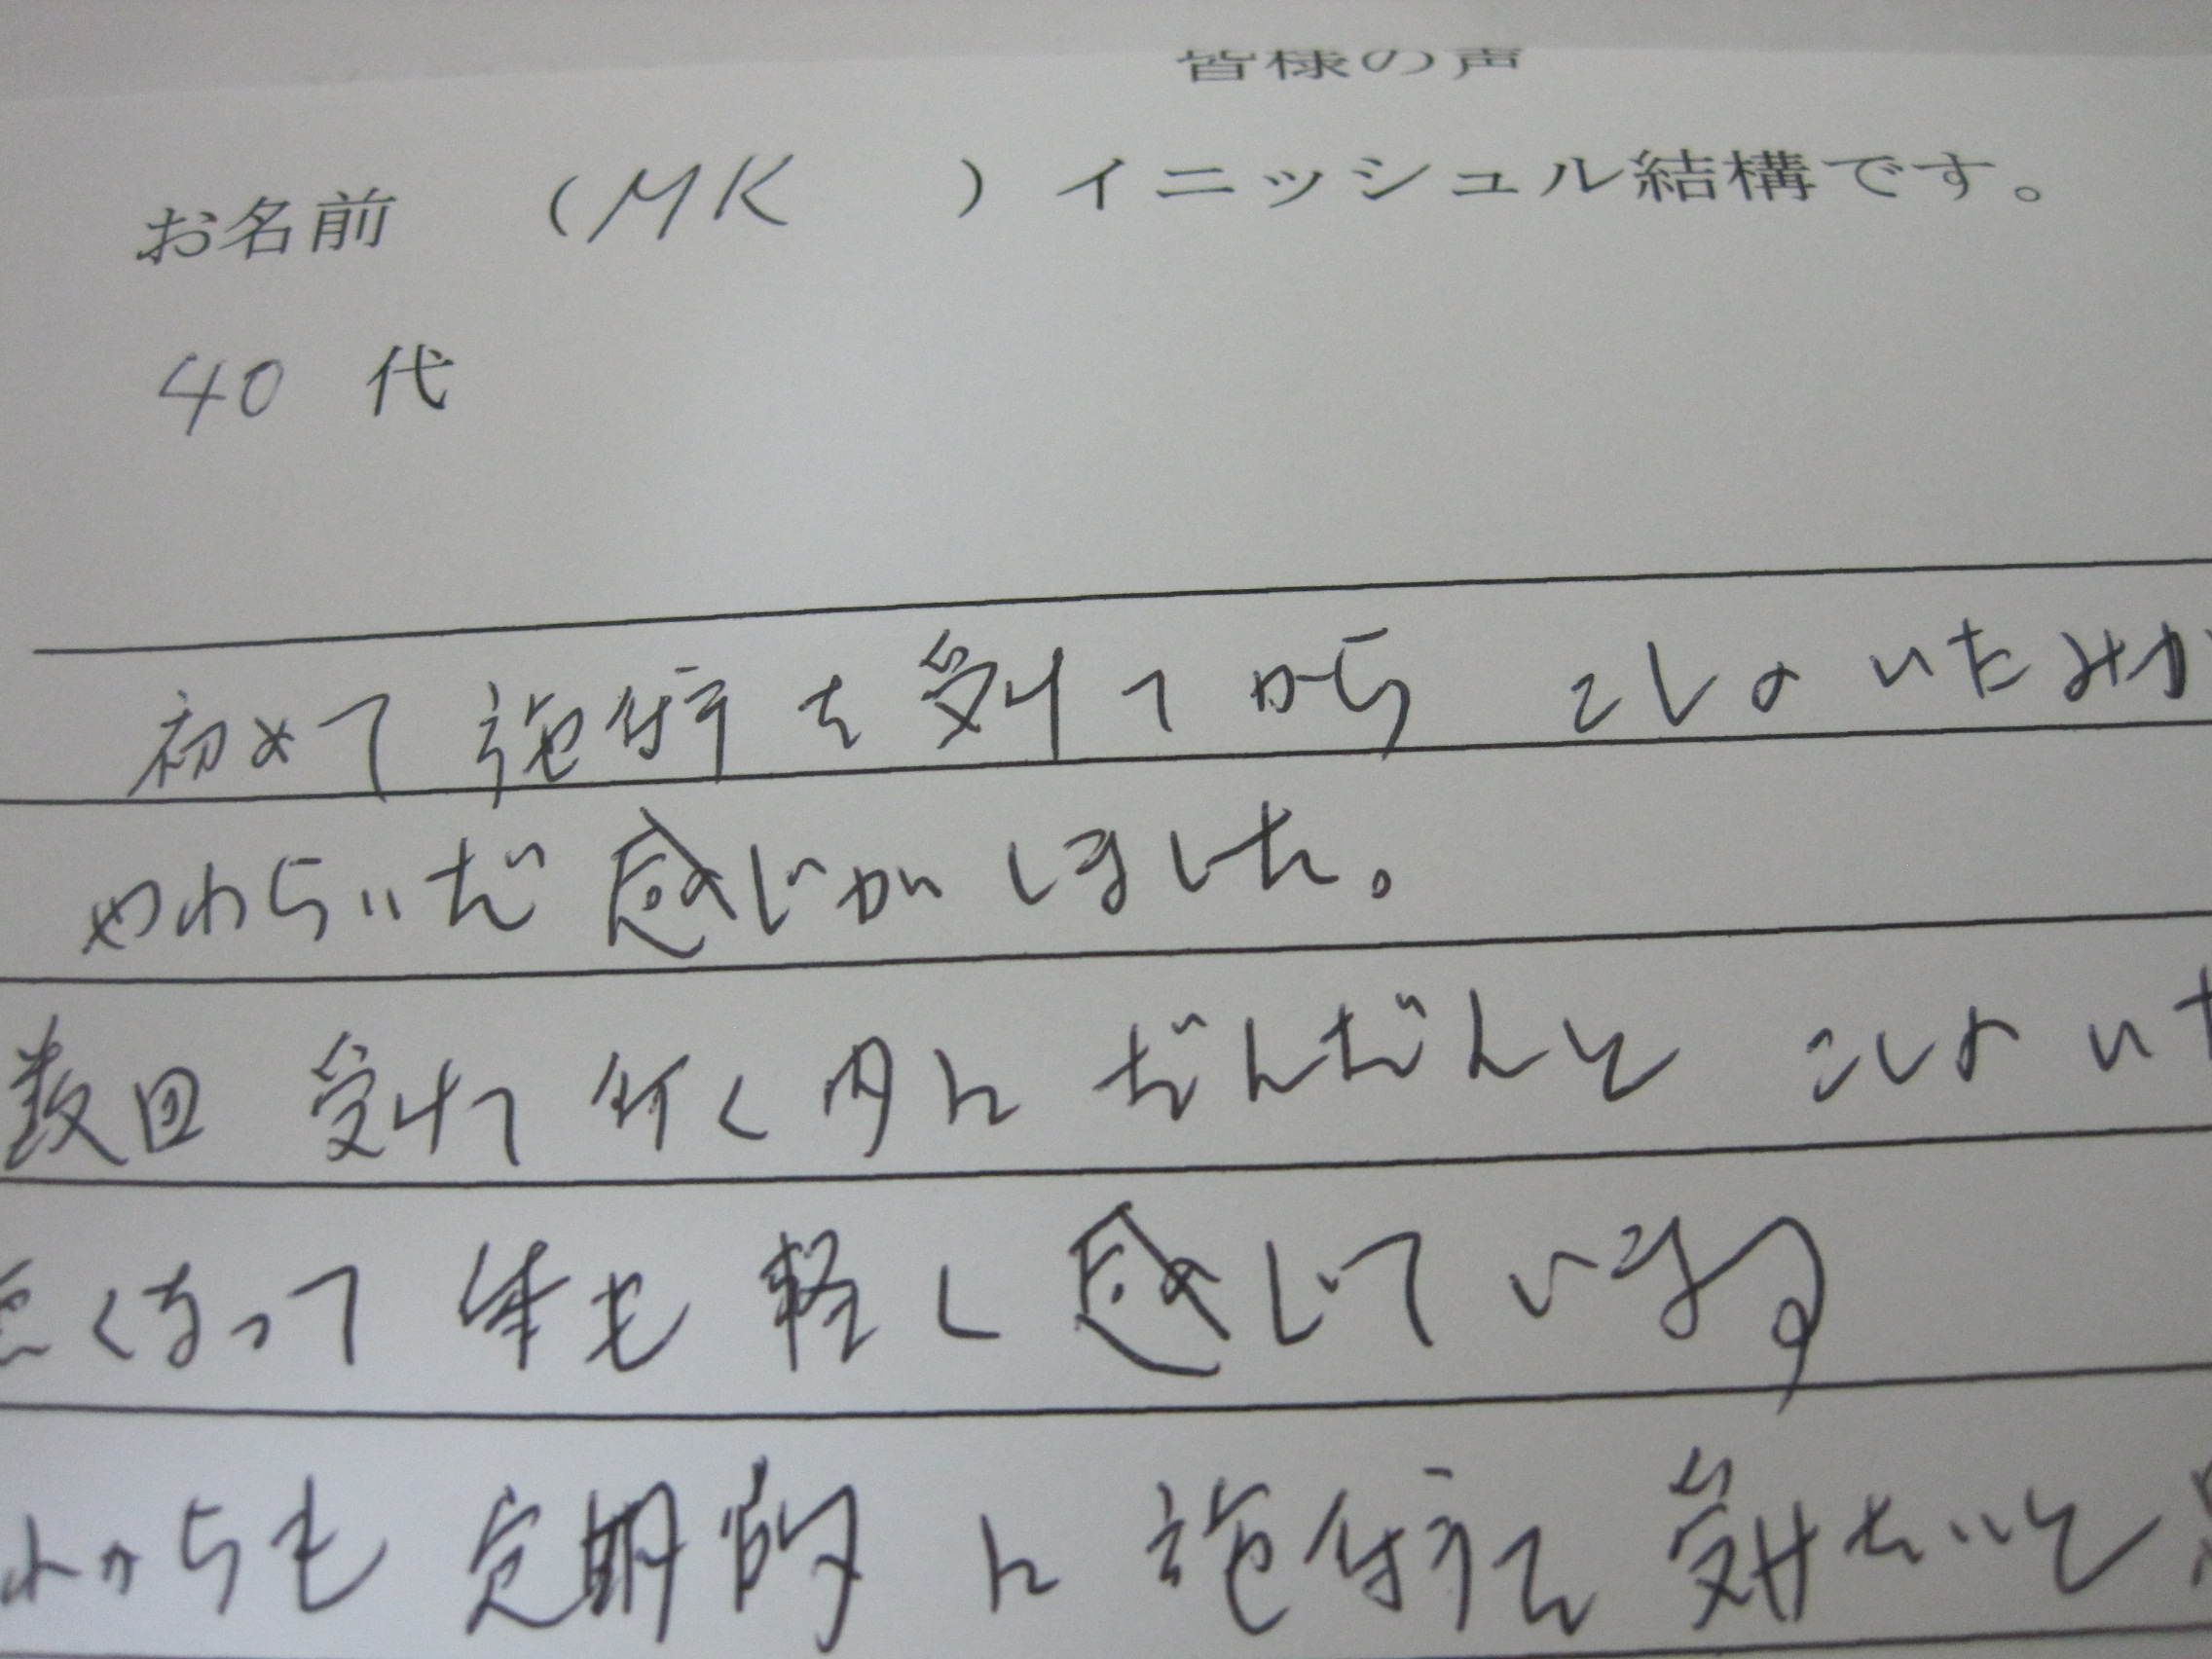 皆様の声
お名前 (MK ) イニッシュル結構です。
40 代
初めて 施術を受けてから こしの いたみが
やわらいだ 感じがしました。
数回 受けて行く内に だんだんと こしの いた
くなって 体も軽く感じています
れからも 定期的に 施術を 受けたいと